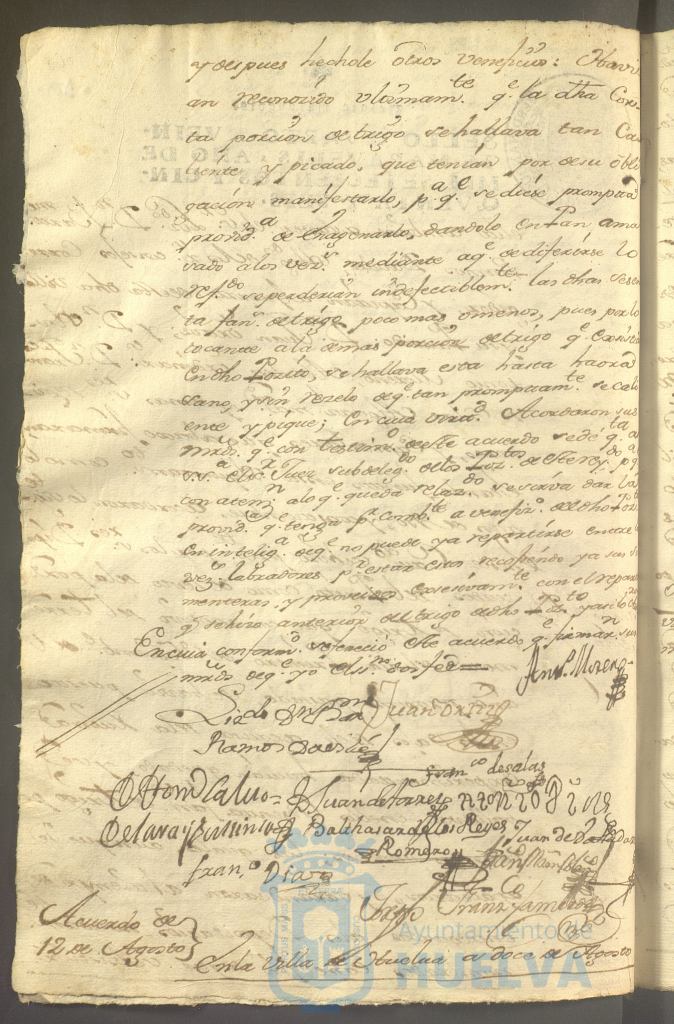 y despues hechole otros veneficios: Havi
an reconosido vltimam.te q.e la dha Cor
ta porcion de trigo se hallava tan Ca
liente y picado, que tenian por de su obli
gacion manifestarlo, p.a q.e se diese prompta
provid.a de Enagenarlo, dandolo en Pan ama
sado a los vez.s mediante a q.e de diferirse lo
ref.do se perderian indefectiblem.te las dhas sesen
ta fan.s de trigo poco mas o menos, pues por lo
tocante a la demas porcion de trigo q.e existia
En dho Posito, se hallava esta hasta haora
sano, y sin rezelo de q.e tan promptam.te se cali
ente y pique; En cuia virtd. Acordaron sus
mrds. q.e con testim.o de este acuerdo se dè q.ta a
s.s.a el s.r Juez subdeleg.do de los Pos.tos de este rey.do p.a q.e
con aten.n a lo q.e queda relaz.do se sirva dar la
provid.a q.e tenga p.r comb.te a venefiz.o de dho Posito
En intelig.a de q.e no puede ya repartirse entre
vez.s labradores p.r estar estos recojiendo ya sus
menteras, y proveidos exsesivam.te con el repar
q.e se hizo anterior de trigo de dho
En cuia conform.d se feneciò este acuerdo q.e firmar.n sus
mrds. de q.e yo el ss.no doy fee=
Ant.o Moreno
Liz.do Dn
Juan Ortiz
Ramos Davila
Fran.co de salas
Calvo = D Juan de Torres
De Lara y Balthasar de los Reyes Juan de
Romero
Fran.co Diaz
Acuerdo de
12 de Agosto
En la Villa de Huelva a doce de Agosto
Ayuntamiento de
HUELVA